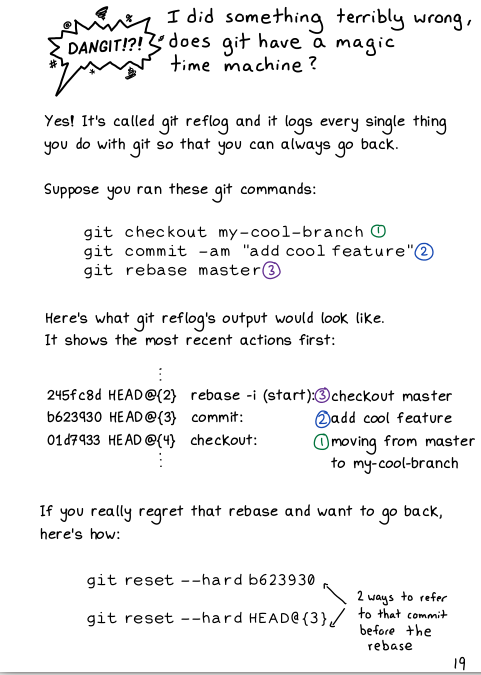 DANGIT!?!
I did something terribly wrong,
does git have a magic
time machine?
Yes! It's called git reflog and it logs every single thing
you do with git so that you can always go back.
Suppose you ran these git commands:
git checkout my-cool-branch ①
git commit -am "add cool feature" ②
git rebase master ③
Here's what git reflog's output would look like.
It shows the most recent actions first:
⋮
245fc8d HEAD@{2} rebase -i (start): ③ checkout master
b623930 HEAD@{3} commit: ② add cool feature
01d7933 HEAD@{4} checkout: ① moving from master
to my-cool-branch
⋮
If you really regret that rebase and want to go back,
here's how:
git reset --hard b623930
git reset --hard HEAD@{3}
2 ways to refer
to that commit
before the
rebase
19